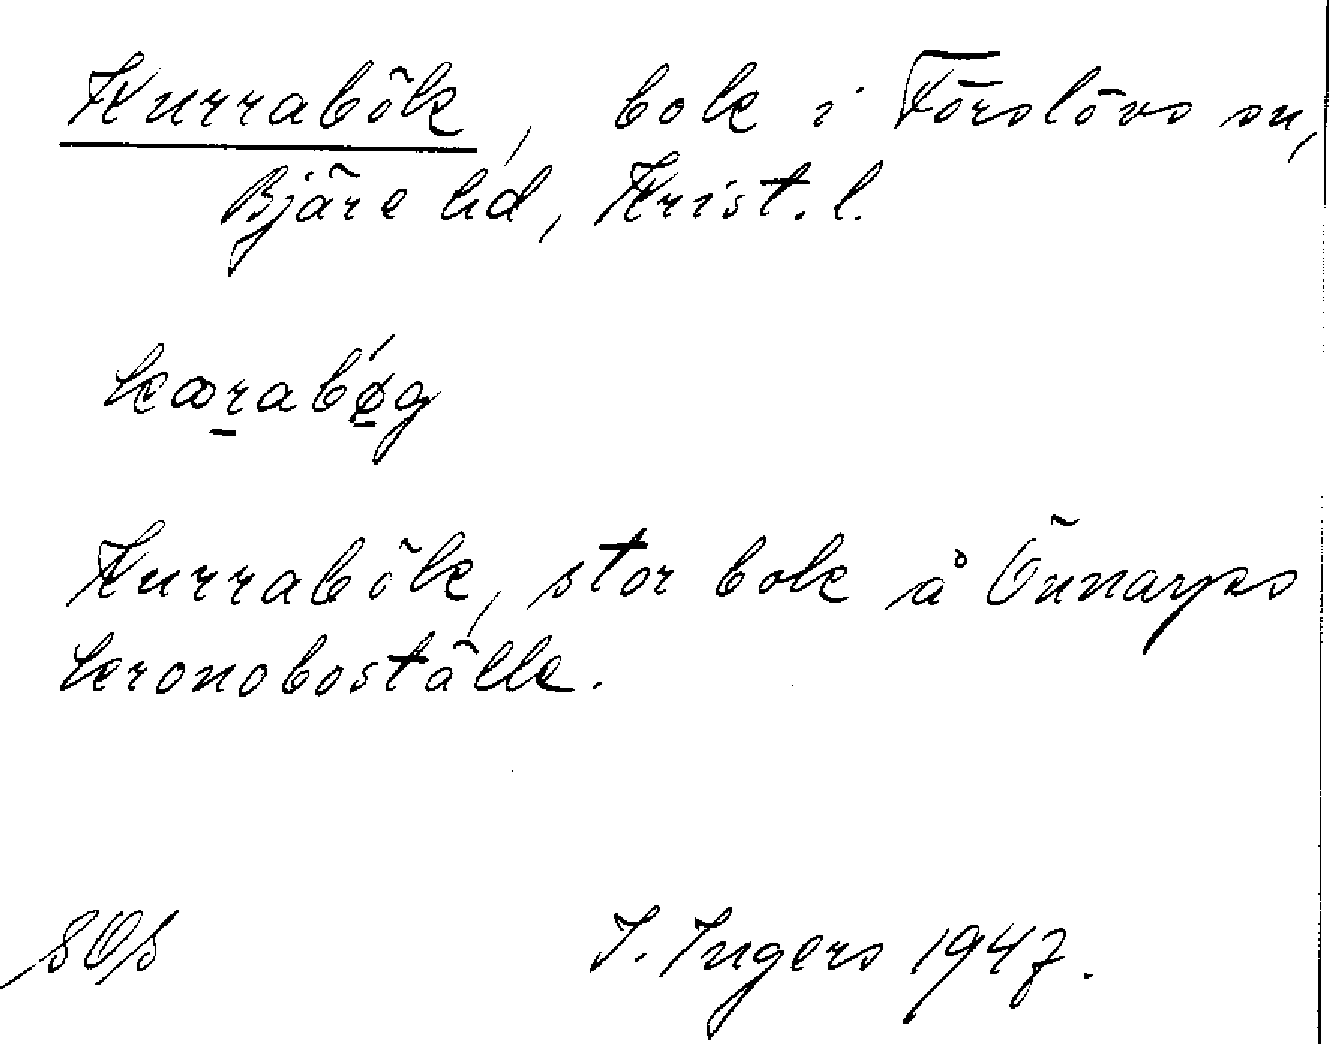 Kurrabök, bok i Förslövs sn,
Bjäre hd, Krist. l.
kꝏrabǿ̱g
Kurrabök, stor bok å Önnarps
kronoboställe.
I. Ingers 1947.